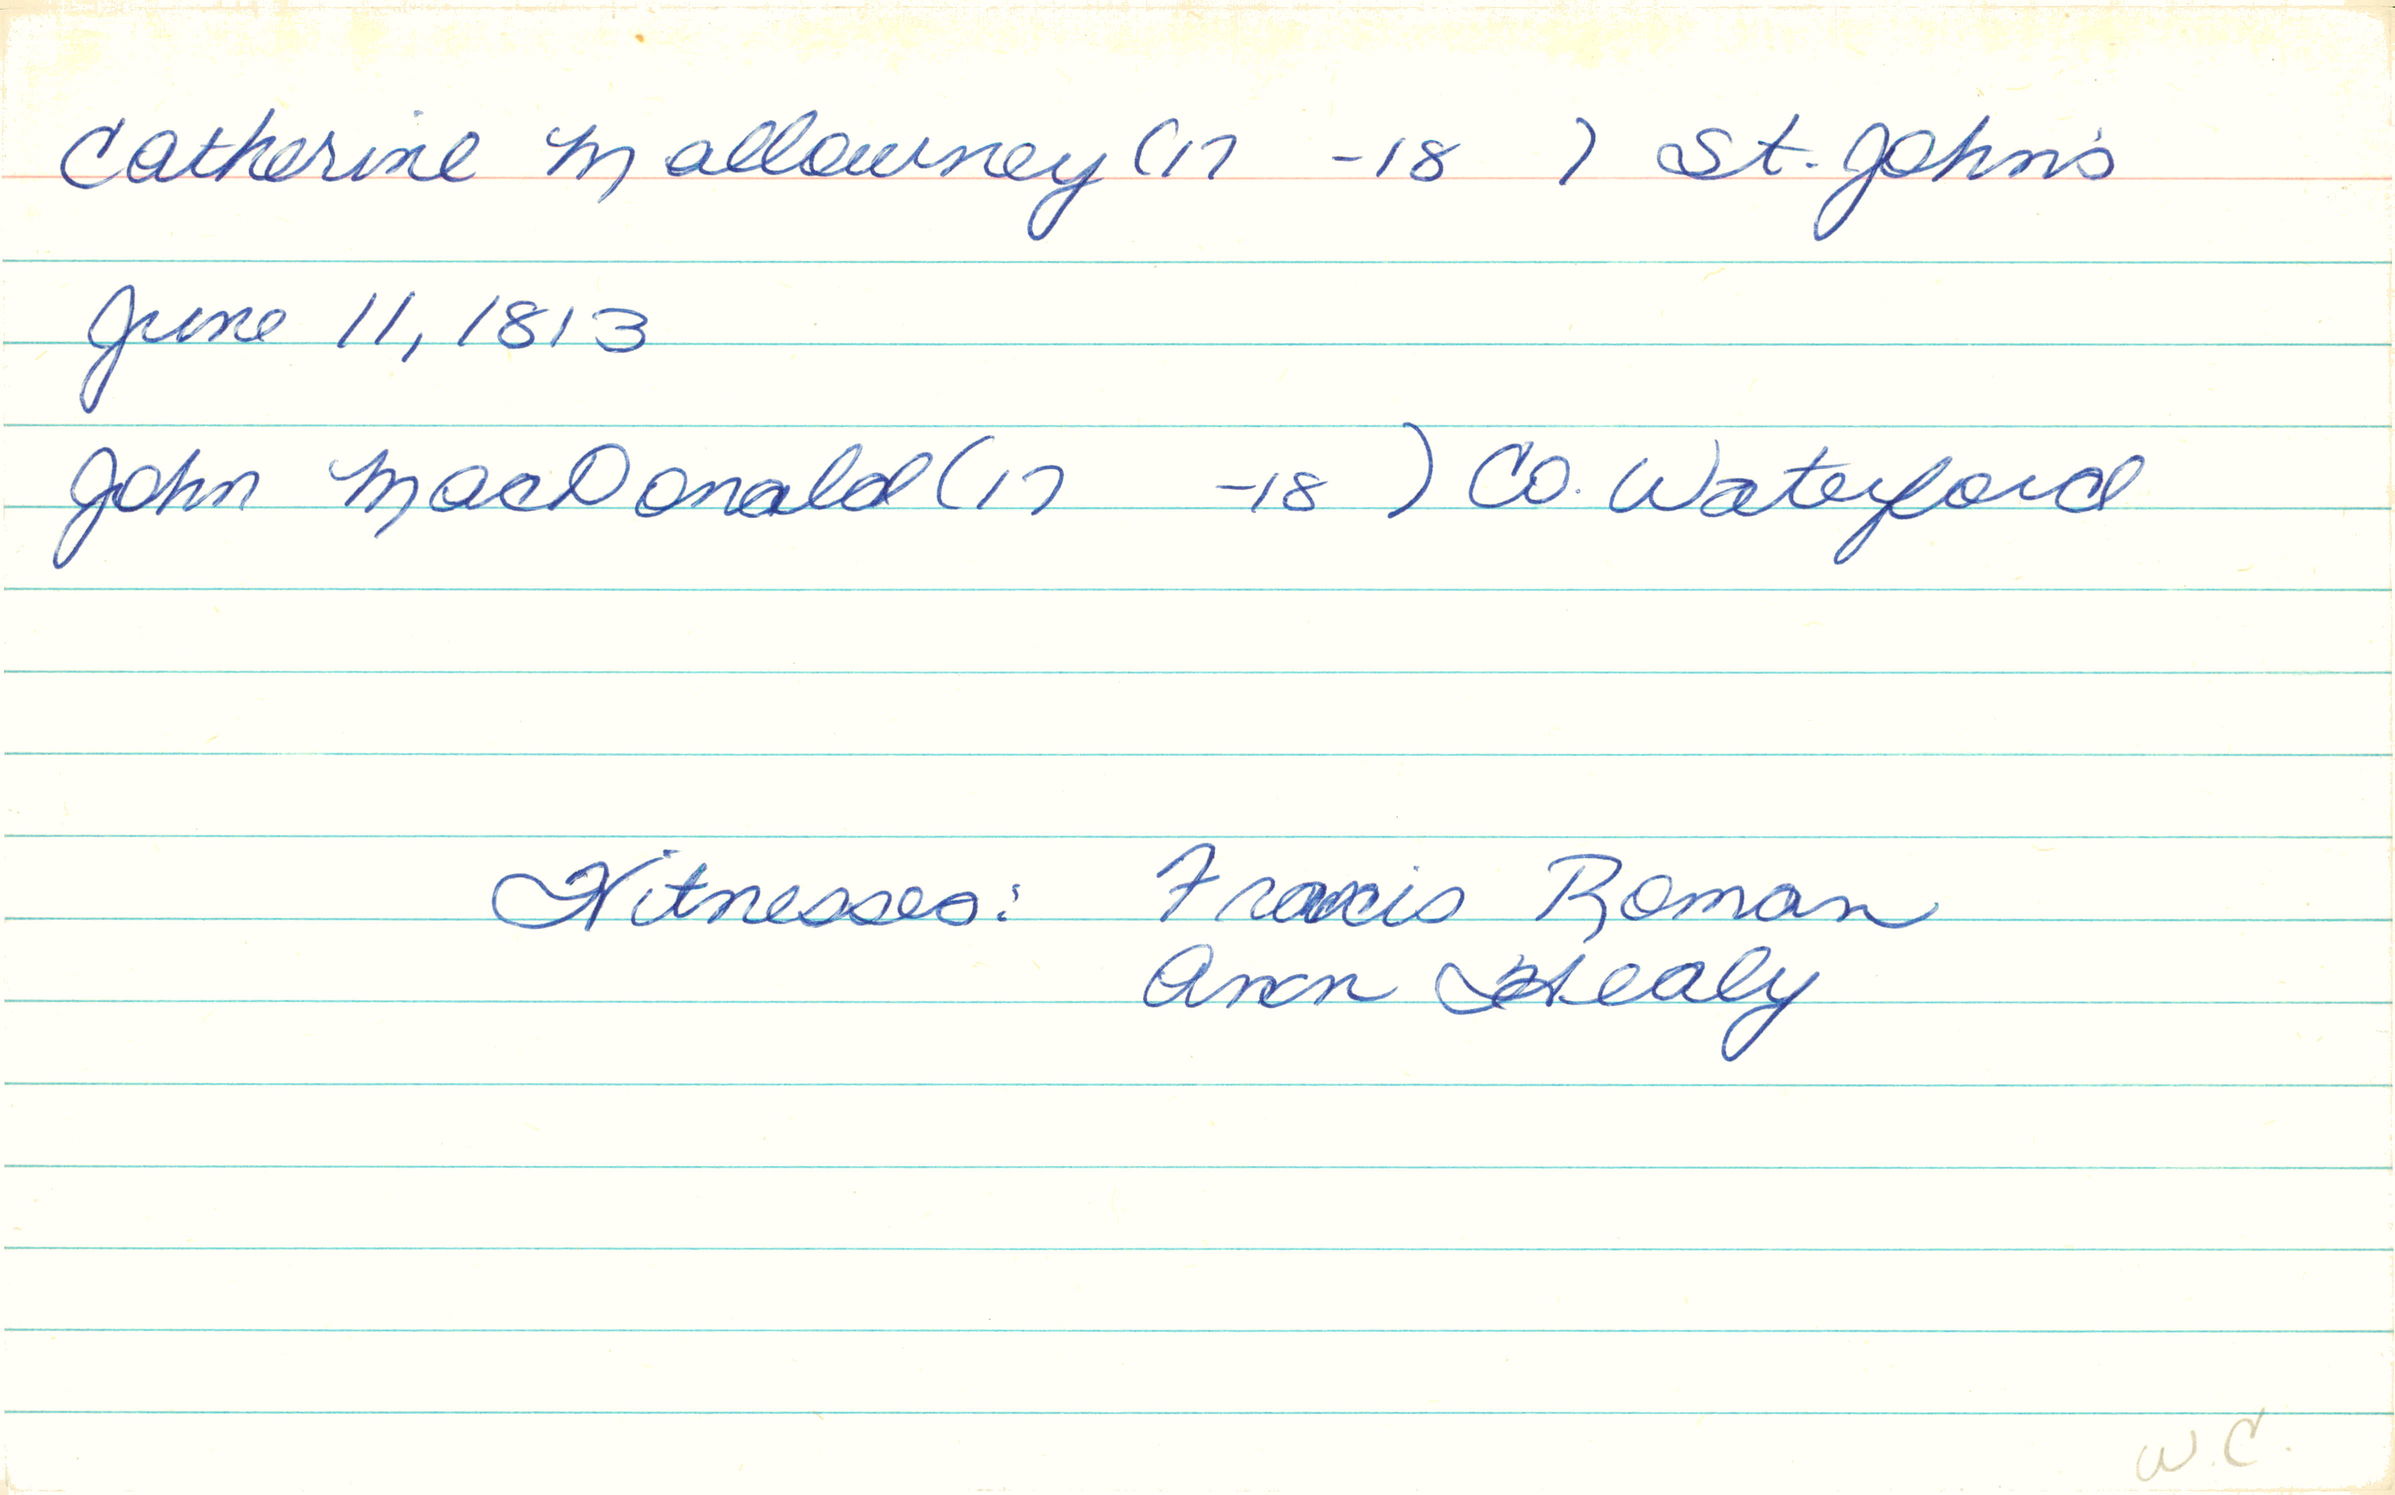 Catherine Mallowney (17    -18    ) St. John's
June 11, 1813
John MacDonald (17    -18    ) Co. Waterford
Witnesses: Francis Roman
Ann Healy
W.C.